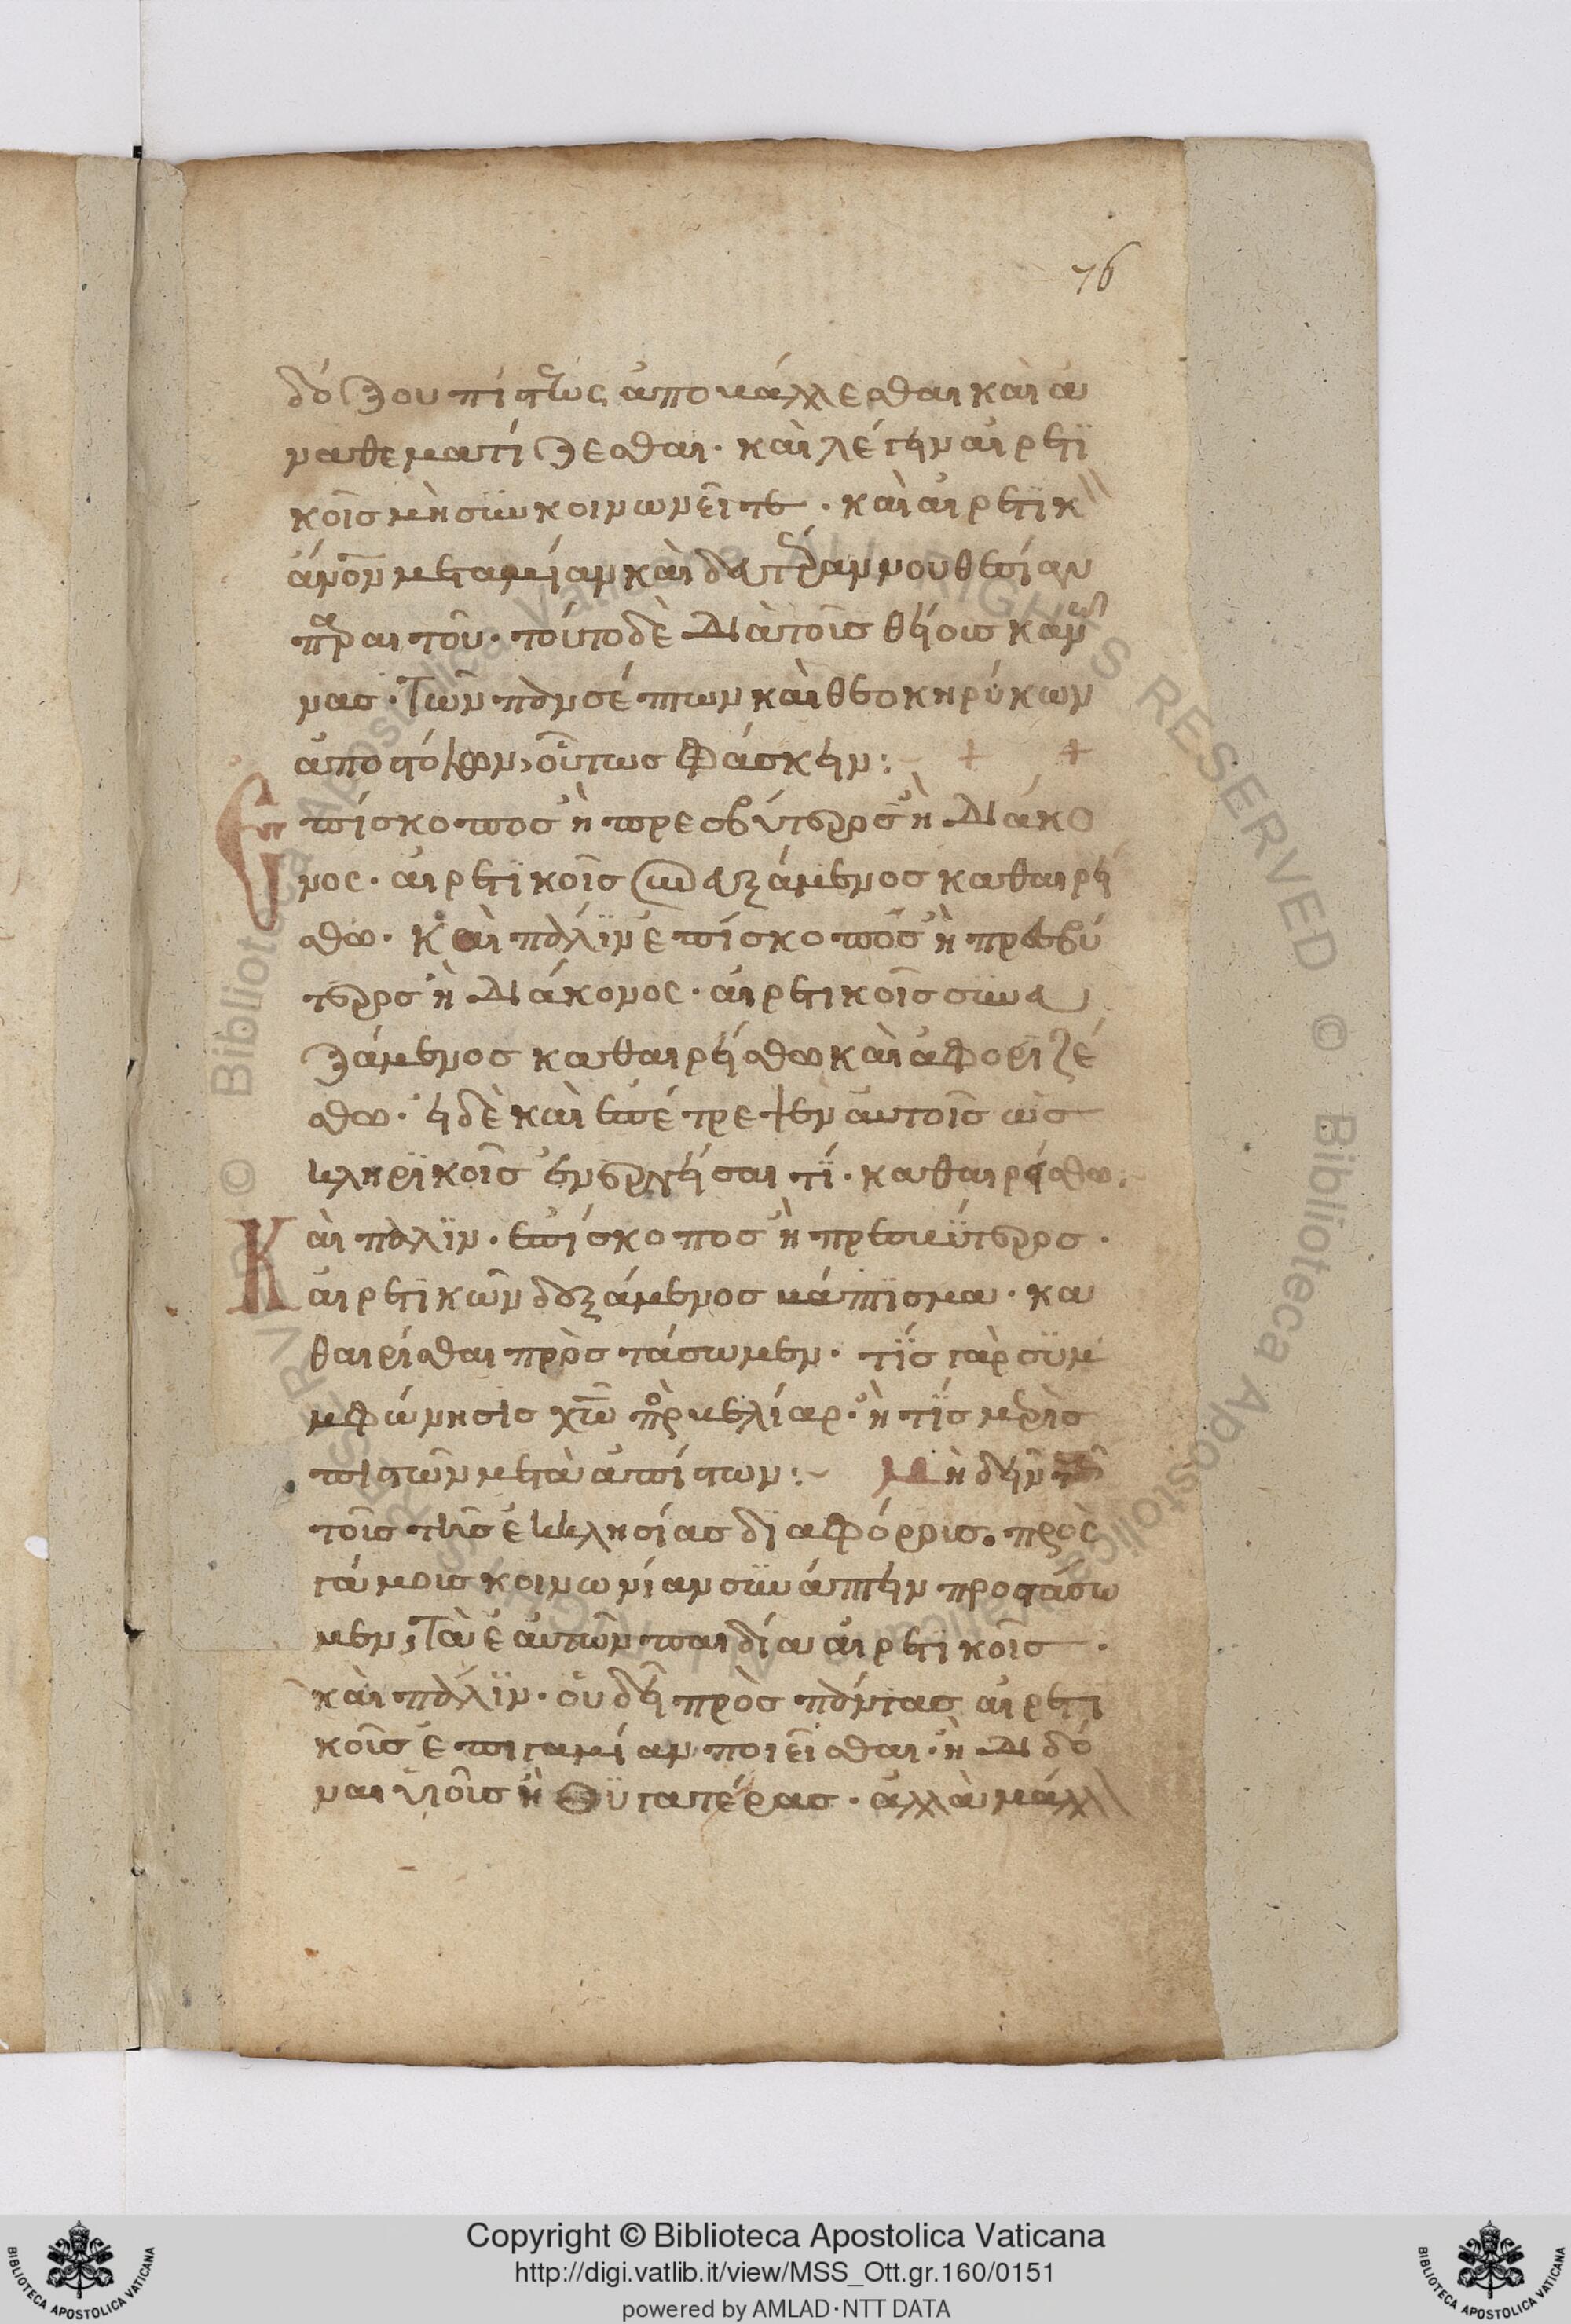 76
δόξου πίστεως ἀποβάλλεσθαι καὶ ἀ
ναθεματίζεσθαι. καὶ λέγειν αἱρετϊ
κοῖς μὴ συγκοινωνεῖτε. καὶ αἱρετϊκ
ἄνον μετα μίαν καὶ δευτέραν νουθεσίαν
παραιτοῦ. τοῦτο δὲ διὰ τοῖς θείοις κανώ
νας. τῶν πανσέπτων καὶ θεοκηρύκων
ἀποστόλων, οὕτως φάσκειν: + +
Ἐπίσκοπος ἢ πρεσβύτερος ἢ διάκο
νος. αἱρετϊκοῖς συνευξάμενος καθαιρεί
σθω. Καὶ πάλϊν ἐπίσκοπος ἢ πρεσβύ
τερος ἢ διάκονος. αἱρετικοῖς συνευ
ξάμενος καθαιρείσθω καὶ ἀφοριζέ
σθω. εἰ δὲ καὶ ἐπέτρεψεν αὐτοῖς ὡς
κληρϊκοῖς ἐνεργεῖσαι τϊ. καθαιρείσθω:
Καὶ πάλϊν. ἐπίσκοπος ἢ πρεσβϋτερος.
αἱρετϊκῶν δεξάμενος βάπτϊσμα. κα
θαιρίσθαι προστάσωμεν. τίς γὰρ συμ
μφώνησις χῶ πρὸ βελίαρ. ἢ τίς μερὶς
πιστῶν μετὰ ἀπίστων: Μὴ δεῖν
τοῖς τῆς ἐκκλησίας δϊαφόροις. πρὸς
γάμοις κοινωνίαν συνάπτειν προστάσω
μεν, τὰ ἑαυτῶν παιδία αἱρετικοῖς.
καὶ πάλϊν. οὐ δεῖ πρὸς πάντας αἱρετϊ
κοῖς ἐπιγαμίαν ποιεῖσθαι. ἢ διδό
ναι υἱοῖς ἢ θϋγατέρας. ἀλλὰ μάλλ
Copyright © Biblioteca Apostolica Vaticana
http://digi.vatlib.it/view/MSS_Ott.gr.160/0151
powered by AMLAD·NTT DATA